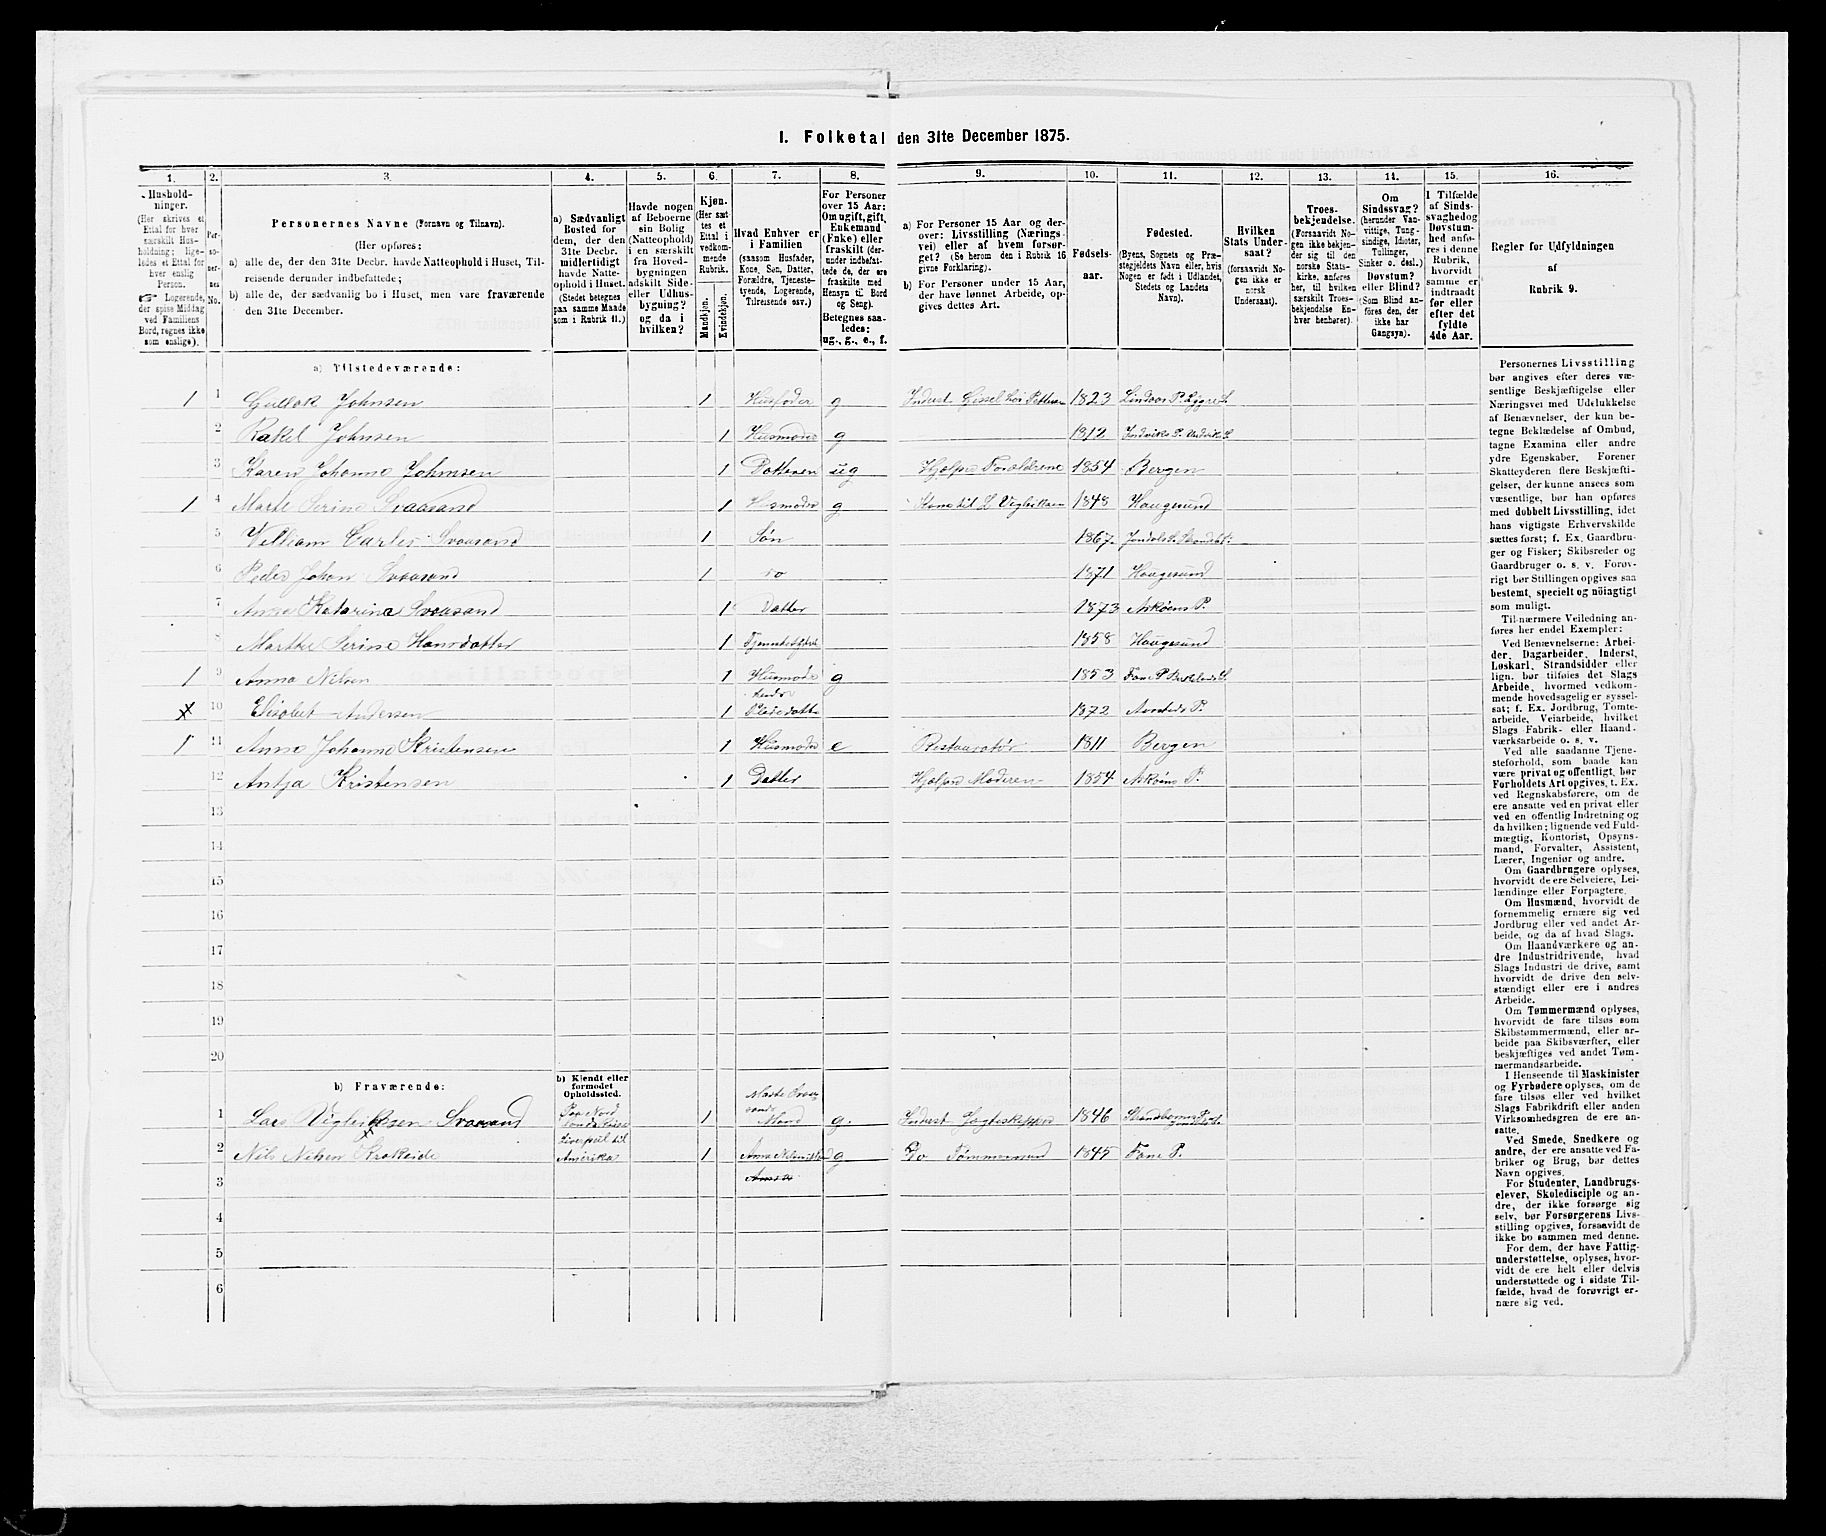 I. Folketal den 31te December 1875.
1. 2. 3. 4. 5. 6. 7. 8. 9. 10. 11. 12. 13. 14. 15. 16.
Hushold-
ninger.
(Her skrives et
Ettal for hver
særskilt Hus-
holdning; lige-
ledes et Ettal for
hver enslig
Person.
☞ Logerende,
der spise Middag
ved Familiens
Bord, regnes ikke
som enslige).
Per-
so-
ner-
nes
No.
Personernes Navne (Fornavn og Tilnavn).
(Her opføres:
a) alle de, der den 31te Decbr. havde Natteophold i Huset, Til-
reisende derunder indbefattede;
b) alle de, der sædvanlig bo i Huset, men vare fraværende
den 31te December.
a) Sædvanligt
Bosted for
dem, der den
31te Decbr.
midlertidigt
havde Natte-
ophold i Huset.
(Stedet betegnes
paa samme Maade
som i Rubrik 11.)
Havde nogen
af Beboerne
sin Bolig
(Natteophold)
i en særskilt
fra Hoved-
bygningen
adskilt Side-
eller Udhus-
bygning?
og da i
hvilken?
Kjøn.
(Her sæt-
tes et
Ettal i
vedkom-
mende
Rubrik.
Mandkjøn.
Kvindekjøn.
Hvad Enhver er
i Familien
(saasom Husfader,
Kone, Søn, Datter,
Forældre, Tjeneste-
tyende, Logerende,
Tilreisende osv.)
For Personer
over 15 Aar:
Om ugift, gift,
Enkemand
(Enke) eller
fraskilt (der-
under indbefat-
tede de, der ere
fraskilte med
Hensyn til Bord
og Seng).
Betegnes saa-
ledes:
ug., g., e., f.
a) For Personer 15 Aar og der-
over: Livsstilling (Nærings-
vei) eller af hvem forsør-
get? (Se herom den i Rubrik 16
givne Forklaring).
b) For Personer under 15 Aar,
der have lønnet Arbeide, op-
gives dettes Art.
Fødsels-
aar.
Fødested.
(Byens, Sognets og Præ-
stegjeldets Navn eller, hvis
Nogen er født i Udlandet,
Stedets og Landets
Navn).
Hvilken
Stats Under-
saat?
(forsaavidt No-
gen ikke er
norsk
Undersaat).
Troes-
bekjendelse.
(Forsaavidt No-
gen ikke bekjen-
der sig til den
norske Stats-
kirke, anføres
her, til hvilken
særskilt Troes-
bekjendelse En-
hver henhører).
Om
Sindssvag?
(herunder Van-
vittige, Tung-
sindige, Idioter,
Tullinger,
Sinker o. desl.)
Døvstum?
eller Blind?
(Som Blind an-
føres den, der
ikke har
Gangsyn).
I Tilfælde
af Sinds-
svaghed og
Døvstum-
hed anfø-
res i denne
Rubrik,
hvorvidt
samme er
indtraadt
før eller
efter det
fyldte
4de Aar.
Regler for Udfyldningen
af
Rubrik 9.
a) Tilstedeværende:
1 1 Gullak Johnsen 1 Husfader g 1823
2 Rakel Johnsen 1 Husmoder g 1812
3 Karen Johanne Johnsen 1 Datteren ug Hjælper Forældrene 1854 Bergen
1 4 Marte Serine Svaasand 1 Husmoder g Kone til L Vigleiksen 1848 Haugesund
5 William Carter Svaasand 1 Søn 1867
6 Peder Johan Svaasand 1 do 1871 Haugesund
7 Anna Katarina Svaasand 1 Datter 1873 Askøens P.
8 Marthe Serine Hansdatter 1 1858 Haugesund
1 9 Anna Nilsen 1 Husmoder g 1853 Fane P
10 Elisabet Andersen 1 Pleiedatter 1872 Aarstads P.
1 11 Anne Johanne Kristensen 1 Husmoder e Restauratør 1811 Bergen
12 Antja Kristensen 1 Datter Hjælper Moderen 1854 Askøens P.
13
14
15
16
17
18
19
20
b) Fraværende:
b) Kjendt eller
formodet
Opholdssted.
1 Lars Vigleiksen Svaasand Paa Nord 1 Marte Svaasands Mand g. Inderst Jægteskipper 1846
2 Nils Nilsen Krokeide Liverpool til Amerika 1 g Do Tømmermand 1845 Fane P.
3
4
5
6
Personernes Livsstilling
bør angives efter deres væ-
sentlige Beskjæftigelse eller
Næringsvei med Udelukkelse
af Benævnelser, der kun be-
tegne Beklædelse af Ombud,
tagne Examina eller andre
ydre Egenskaber. Forener
Skatteyderen flere Beskjæfti-
gelser, der kunne ansees som
væsentlige, bør han opføres
med dobbelt Livsstilling, idet
hans vigtigste Erhvervskilde
sættes først; f. Ex. Gaardbru-
ger og Fisker; Skibsreder og
Gaardbruger o. s. v. Forøv-
rigt bør Stillingen opgives saa
bestemt, specielt og nöiagtigt
som muligt.
Til nærmere Veiledning an-
føres her endel Exempler:
Ved Benævnelserne: Arbei-
der, Dagarbeider, Inderst,
Løskarl, Strandsidder eller
lign. bør tilføies det Slags
Arbeide, hvormed vedkom-
mende hovedsagelig er syssel-
sat; f. Ex. Jordbrug, Tomte-
arbeide, Veiarbeide, hvilket
Slags Fabrik- eller Haand-
værksarbeide o. s. v.
Ved alle saadanne Tjene-
steforhold, som baade kan
være privat og offentligt, bør
Forholdets Art opgives, t. Ex.
ved Regnskabsførere, om de
ere ansatte ved en privat eller
ved en offentlig Indretning og
da hvilken; lignende ved Fuld-
mægtig, Kontorist, Opsyns-
mand, Forvalter, Assistent,
Lærer, Ingeniør og andre.
Om Gaardbrugere oplyses,
hvorvidt de ere Selveiere, Lei-
lændinge eller Forpagtere.
Om Husmænd, hvorvidt de
fornemmelig ernære sig ved
Jordbrug eller ved andet Ar-
beide, og da af hvad Slags.
Om Haandværkere og an-
dre Industridrivende, hvad
Slags Industri de drive, samt
hvorvidt de drive den selv-
stændigt eller ere i andres
Arbeide.
Om Tømmermænd oplyses,
hvorvidt de fare tilsøs som
Skibstømmermænd, eller ar-
beide paa Skibsværfter, eller
beskjæftiges ved andet Tøm-
mermandsarbeide.
I Henseende til Maskinister
og Fyrbødere oplyses, om de
fare tilsøs eller ved hvilket
Slags Fabrikdrift eller anden
Virksomhedsgren de ere an-
satte.
Ved Smede, Snedkere og
andre, der ere ansatte ved Fa-
briker og Brug, bør dettes
Navn opgives.
For Studenter, Landbrugs-
elever, Skoledisciple og an-
dre, der ikke forsørge sig
selv, bør Forsørgerens Livs-
stilling opgives, forsaavidt de
ikke bo sammen med denne.
For dem, der have Fattig-
understøttelse, oplyses, hvor-
vidt de ere helt eller delvis
understøttede og i sidste Til-
fælde, hvad de forøvrigt er-
nære sig ved.